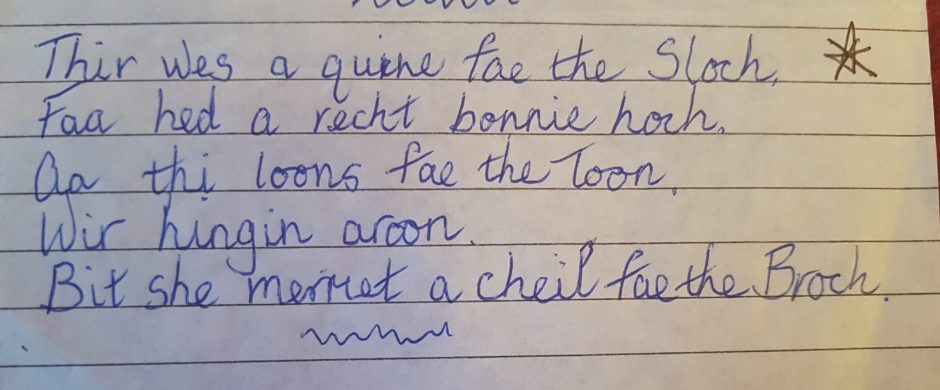 Thir wes a quine fae the Sloch,
Faa hed a recht bonnie hoch.
Aa thi loons fae the Toon,
Wir hingin aroon.
Bit she merriet a cheil fae the Broch.